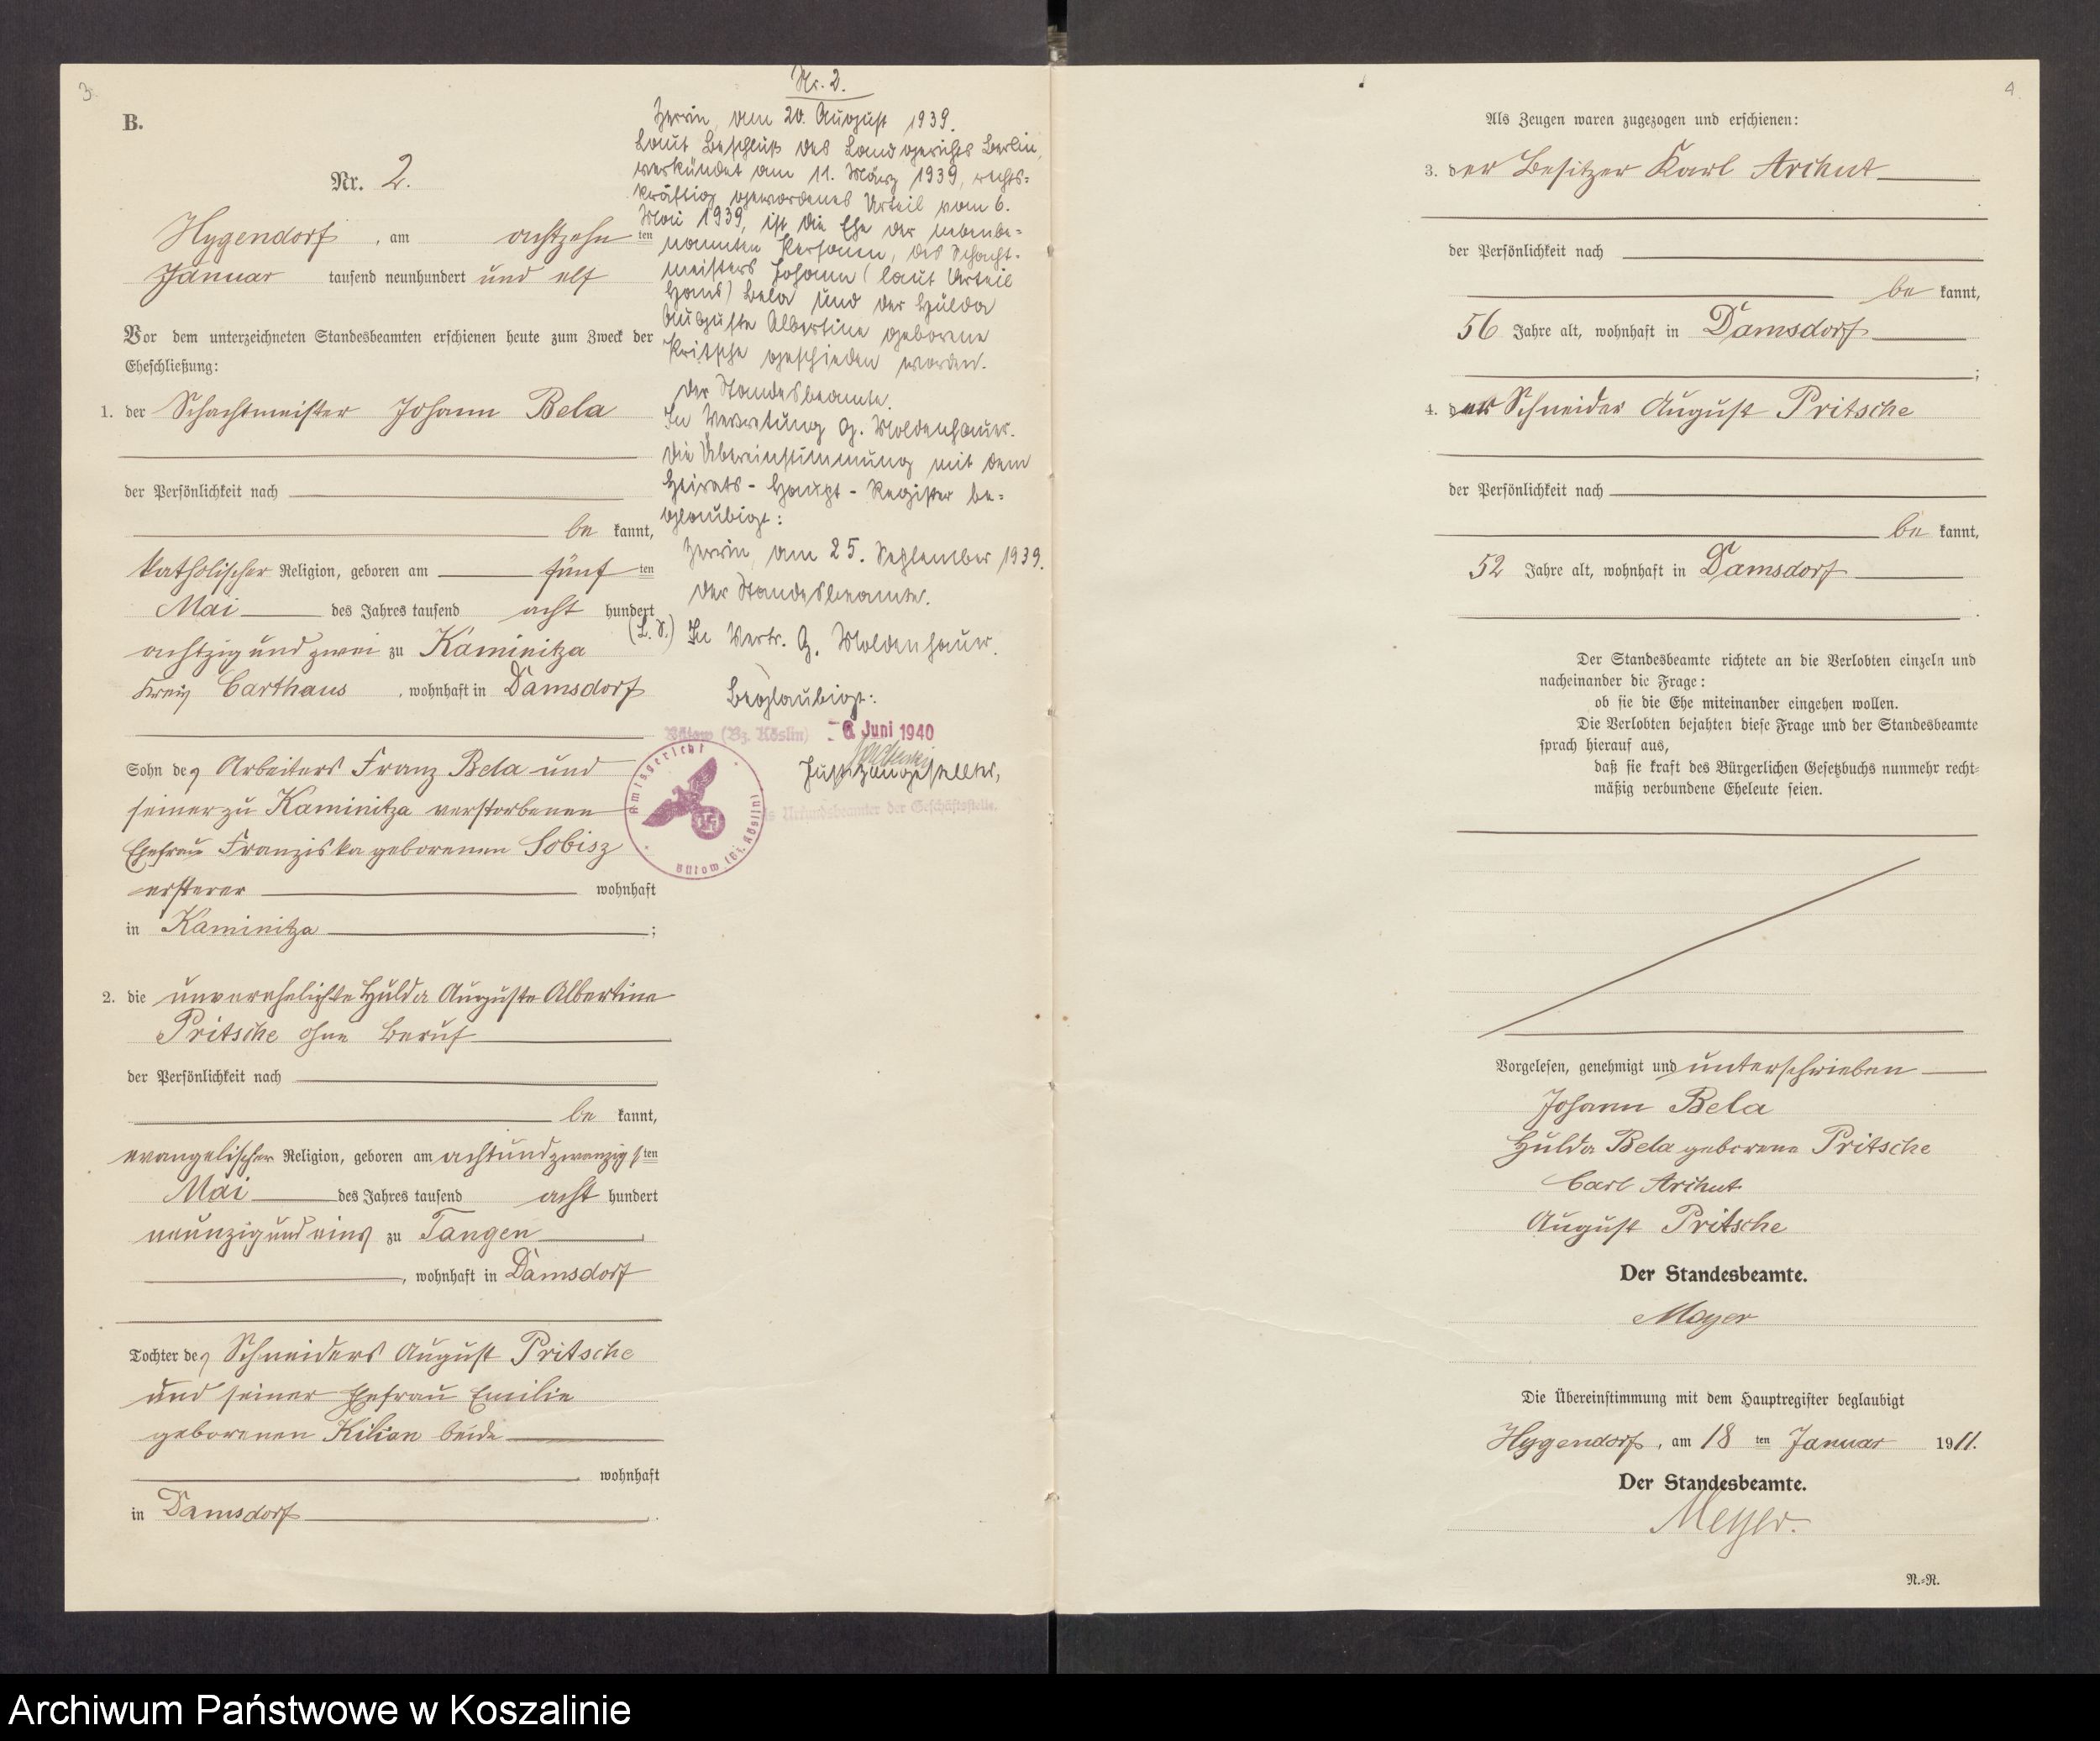 3
B.
Nr. 2.
Hygendorf, am achtzehnten
Januar tausend neunhundert und elf
Vor dem unterzeichneten Standesbeamten erschienen heute zum Zweck der
Eheschließung:
1. der Schachtmeister Johann Bela
der Persönlichkeit nach
be kannt,
katholischer Religion, geboren am fünften
Mai des Jahres tausend acht hundert
achtzig und zwei zu Kaminitza
Kreis Carthaus, wohnhaft in Damsdorf
Sohn des Arbeiters Franz Bela und
seiner zu Kaminitza verstorbenen
Ehefrau Franziska geborenen Sobisz
ersterer wohnhaft
in Kaminitza;
2. die unverehelichte Hulda Auguste Albertine
Pritsche ohne Beruf
der Persönlichkeit nach
be kannt,
evangelischer Religion, geboren am achtundzwanzigsten
Mai des Jahres tausend acht hundert
neunzig und eins zu Tangen,
, wohnhaft in Damsdorf
Tochter des Schneiders August Pritsche
und seiner Ehefrau Emilie
geborenen Kilian beide
wohnhaft
in Damsdorf.
Nr. 2.
Zerrin, am 20. August 1939.
Laut Beschluß des Landgerichts Berlin,
verkündet am 11. März 1939, rechts=
kräftig gewordenes Urteil vom 6.
Mai 1939, ist die Ehe der nebenbe=
nannten Personen, des Schacht-
meisters Johann (laut Urteil
Hans) Bela und der Hulda
Auguste Albertine geborene
Pritsche geschieden worden.
Der Standesbeamte.
In Vertretung G. Moldenhauer.
Die Übereinstimmung mit dem
Heirats-Haupt-Register be=
glaubigt:
Zerrin, am 25. September 1939.
Der Standesbeamte.
(L. S.) In Vertr. G. Moldenhauer.
Beglaubigt:
Bütow (Bz. Köslin) - 6. Juni 1940
Justizangestellter,
als Urkundsbeamter der Geschäftsstelle.
Amtsgericht
Bütow (Bz. Köslin)
4
Als Zeugen waren zugezogen und erschienen:
3. der Besitzer Karl Arihut
der Persönlichkeit nach
be kannt,
56 Jahre alt, wohnhaft in Damsdorf
;
4. der Schneider August Pritsche
der Persönlichkeit nach
be kannt,
52 Jahre alt, wohnhaft in Damsdorf
.
Der Standesbeamte richtete an die Verlobten einzeln und
nacheinander die Frage:
ob sie die Ehe miteinander eingehen wollen.
Die Verlobten bejahten diese Frage und der Standesbeamte
sprach hierauf aus,
daß sie kraft des Bürgerlichen Gesetzbuchs nunmehr recht=
mäßig verbundene Eheleute seien.
Vorgelesen, genehmigt und unterschrieben
Johann Bela
Hulda Bela geborene Pritsche
Carl Arihut
August Pritsche
Der Standesbeamte.
Meyer
Die Übereinstimmung mit dem Hauptregister beglaubigt
Hygendorf, am 18ten Januar 1911.
Der Standesbeamte.
Meyer.
N.=R.
Archiwum Państwowe w Koszalinie